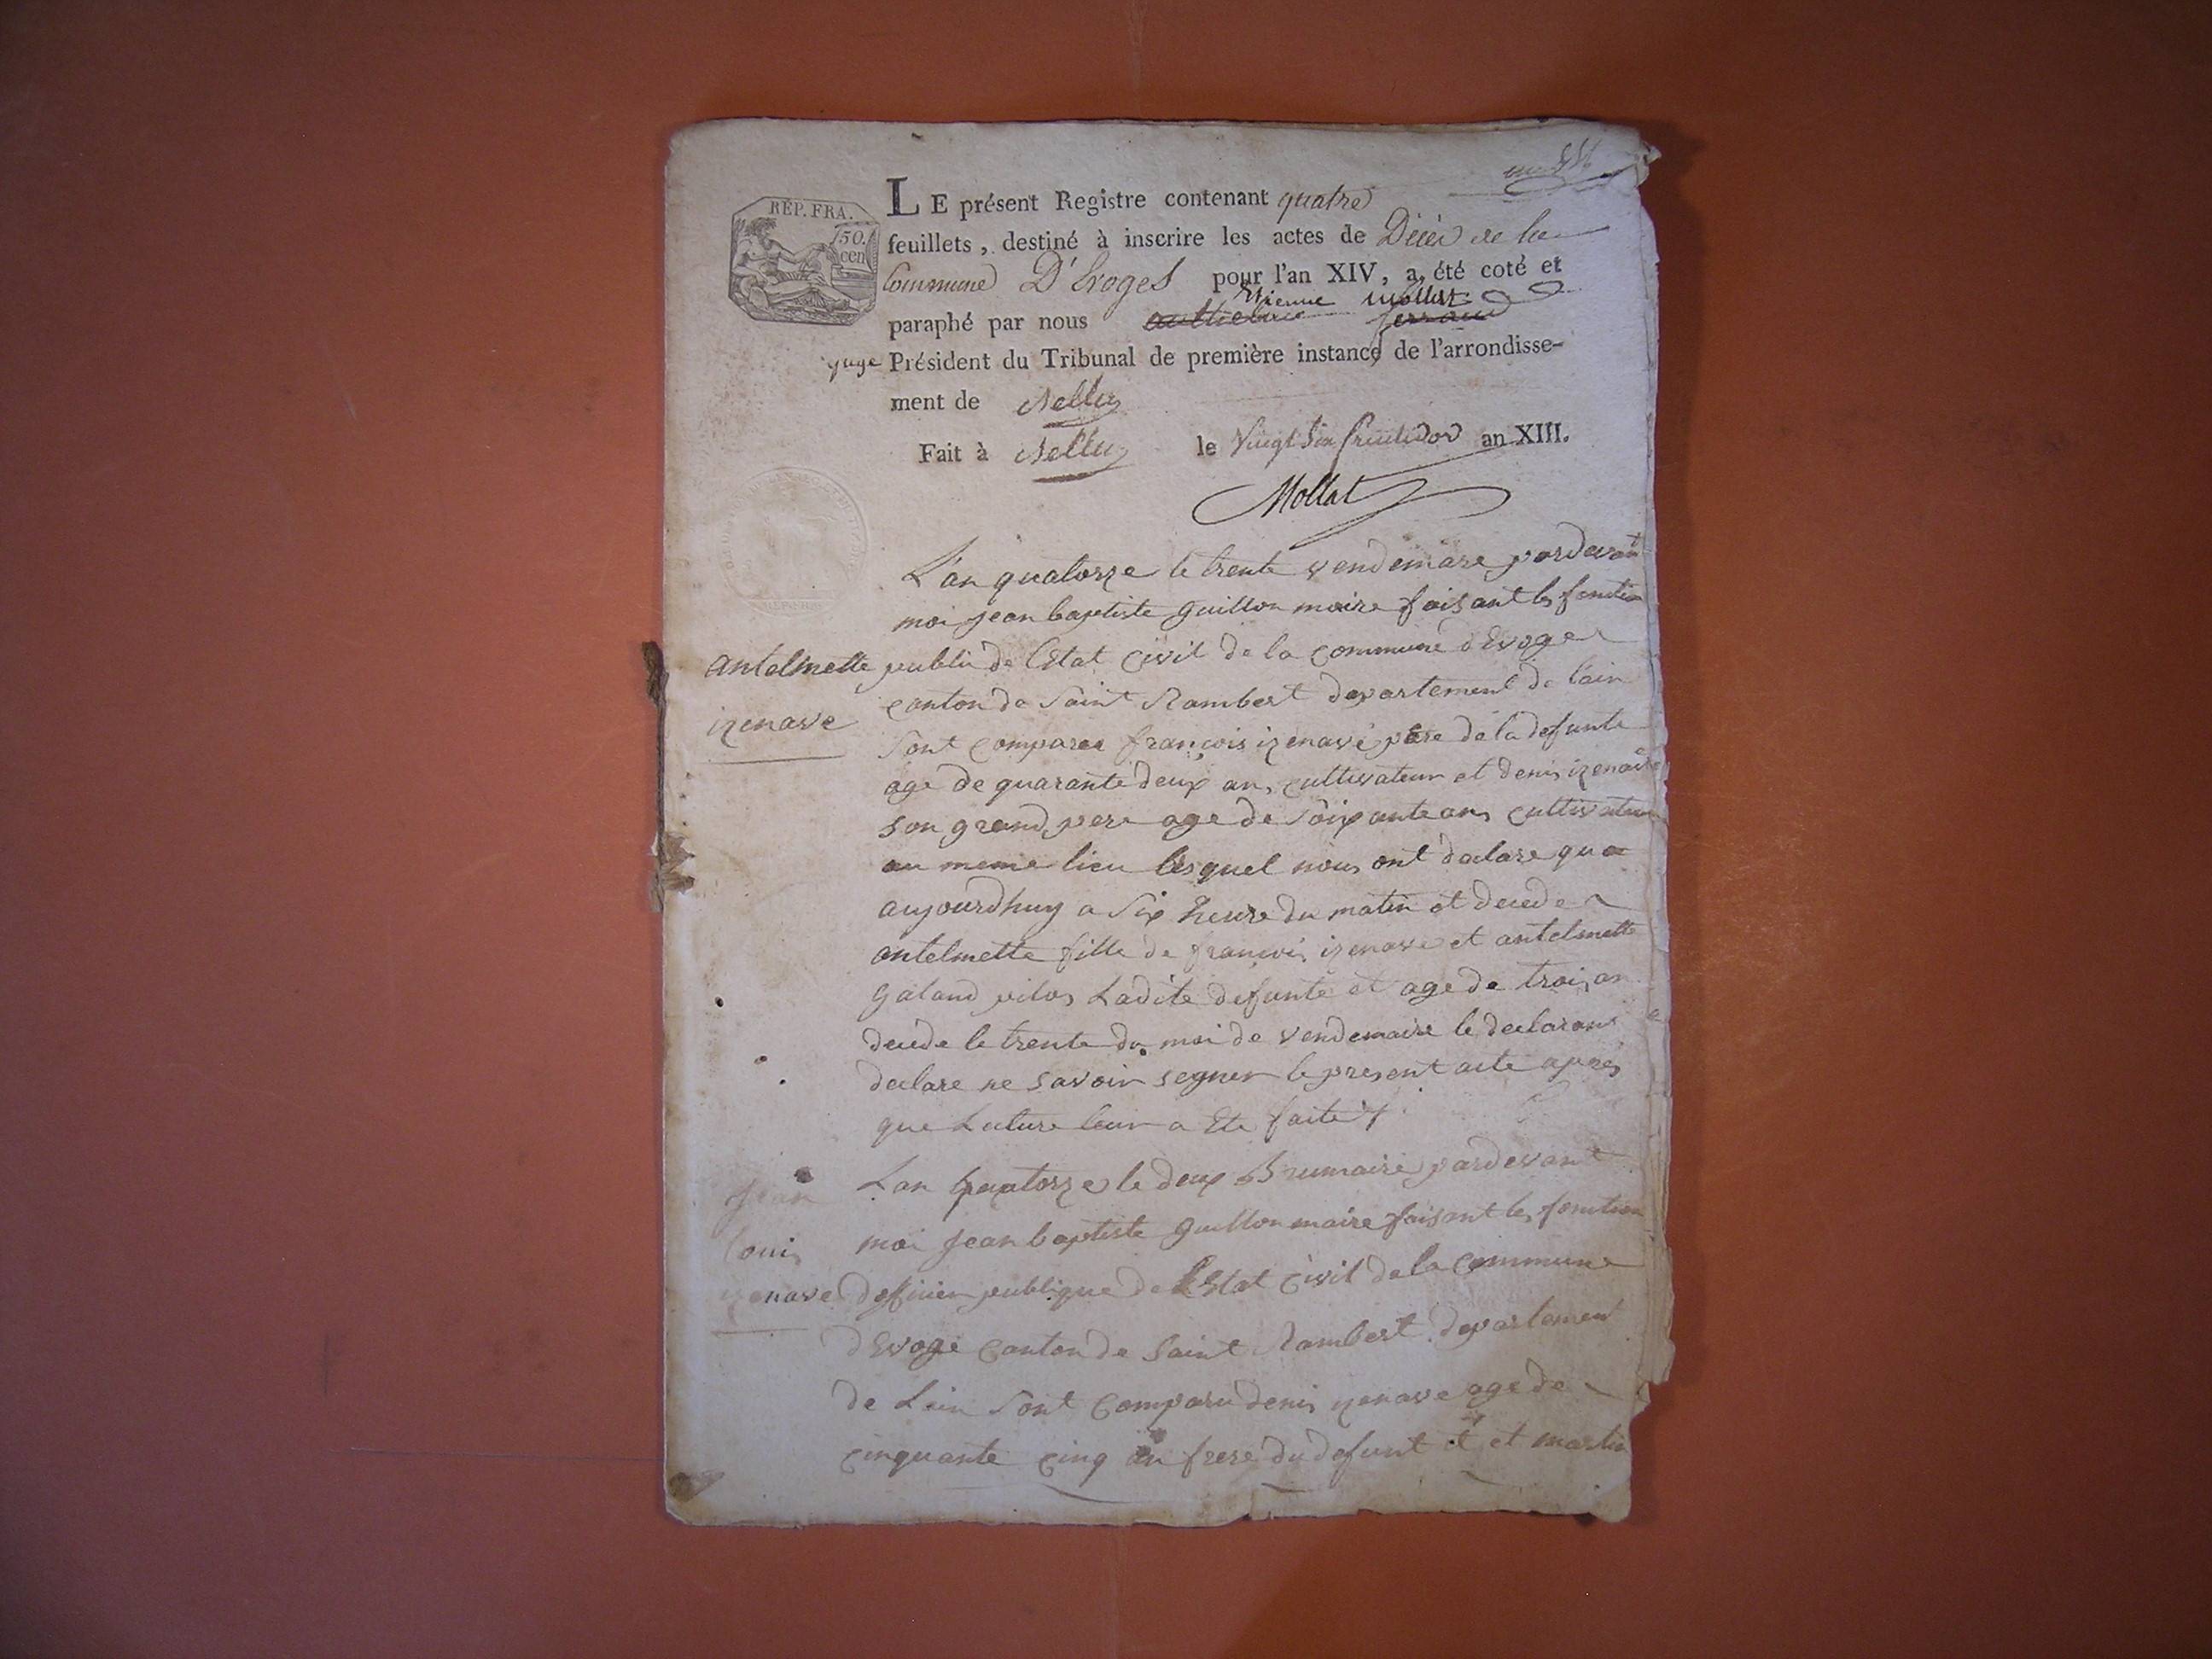 RÉP. FRA.
50.
cen
LE présent Registre contenant quatre
feuillets, destiné à inscrire les actes de Décès de la
Commune D'Evoges pour l'an XIV, a été coté et
Etienne Mollet
paraphé par nous
juge Président du Tribunal de première instance de l'arrondisse-
ment de Belley
Fait à Belley le Vingt Six fructidor an XIII.
Mollat
L'an quatorze le trente vendemiare pardevant
moi jean baptiste guillon maire faisant les fonction
antelmette public de l'Etat Civil de la commune d'Evoge
canton de Saint Rambert departement de l'ain
izenave
sont comparee françois izenave père de la defunte
age de quarante deux ans cultivateur et denis izenave
son grand pere age de soixante ans cultivateur
au meme lieu lesquel nous ont declare que
aujourdhuy a six heure du matin et decede
antelmette fille de francois izenave et antelmette
galand Ladite defunte et age de trois an
decede le trente du moi de vendemaire le declarant
declare ne savoir segner le present acte après
que Lecture leur a Ete faite
jean Lan quatorze le deux Brumaire pardevant
louis moi jean baptiste guillon maire faisant les fonction
izenave dofficier publique de l'Etat Civil de la Commune
dEvoge canton de Saint Rambert departement
de Lain sont comparu denis izenave age de
cinquante cinq an frere du defunt et et martin